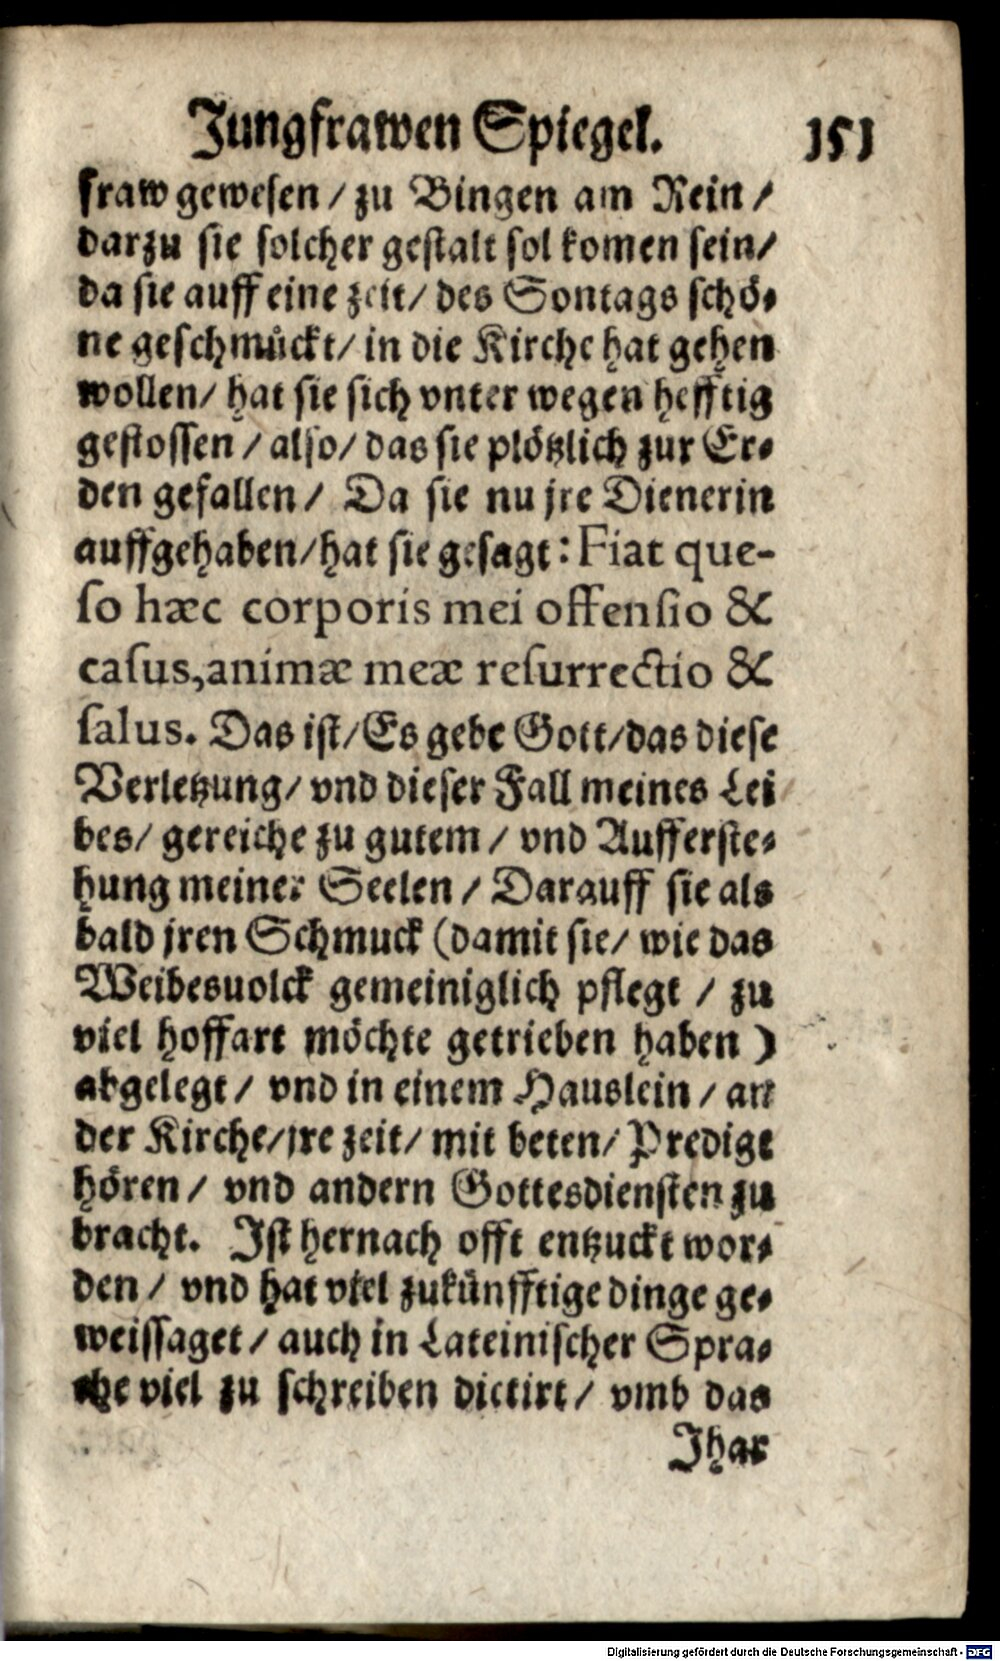 Jungfrawen Spiegel. 151
fraw gewesen / zu Bingen am Rein /
darzu sie solcher gestalt sol komen sein/
da sie auff eine zeit/ des Sontags schö-
ne geschmückt/ in die Kirche hat gehen
wollen/ hat sie sich vnter wegen hefftig
gestossen / also/ das sie plötzlich zur Er-
den gefallen/ Da sie nu jre Dienerin
auffgehaben/hat sie gesagt: Fiat que-
so hæc corporis mei offensio &
casus, animæ meæ resurrectio &
salus. Das ist/Es gebe Gott/das diese
Verletzung/ vnd dieser Fall meines Lei
bes/ gereiche zu gutem / vnd Aufferste-
hung meiner Seelen / Darauff sie als
bald jren Schmuck (damit sie/ wie das
Weibesuolck gemeiniglich pflegt / zu
viel hoffart möchte getrieben haben )
abgelegt/ vnd in einem Hauslein / an
der Kirche/jre zeit/ mit beten/ Predigt
hören / vnd andern Gottesdiensten zu
bracht. Ist hernach offt entzuckt wor-
den / vnd hat viel zukünfftige dinge ge-
weissaget / auch in Lateinischer Spra-
che viel zu schreiben dictirt/ vmb das
Jhar
Digitalisierung gefördert durch die Deutsche Forschungsgemeinschaft - DFG